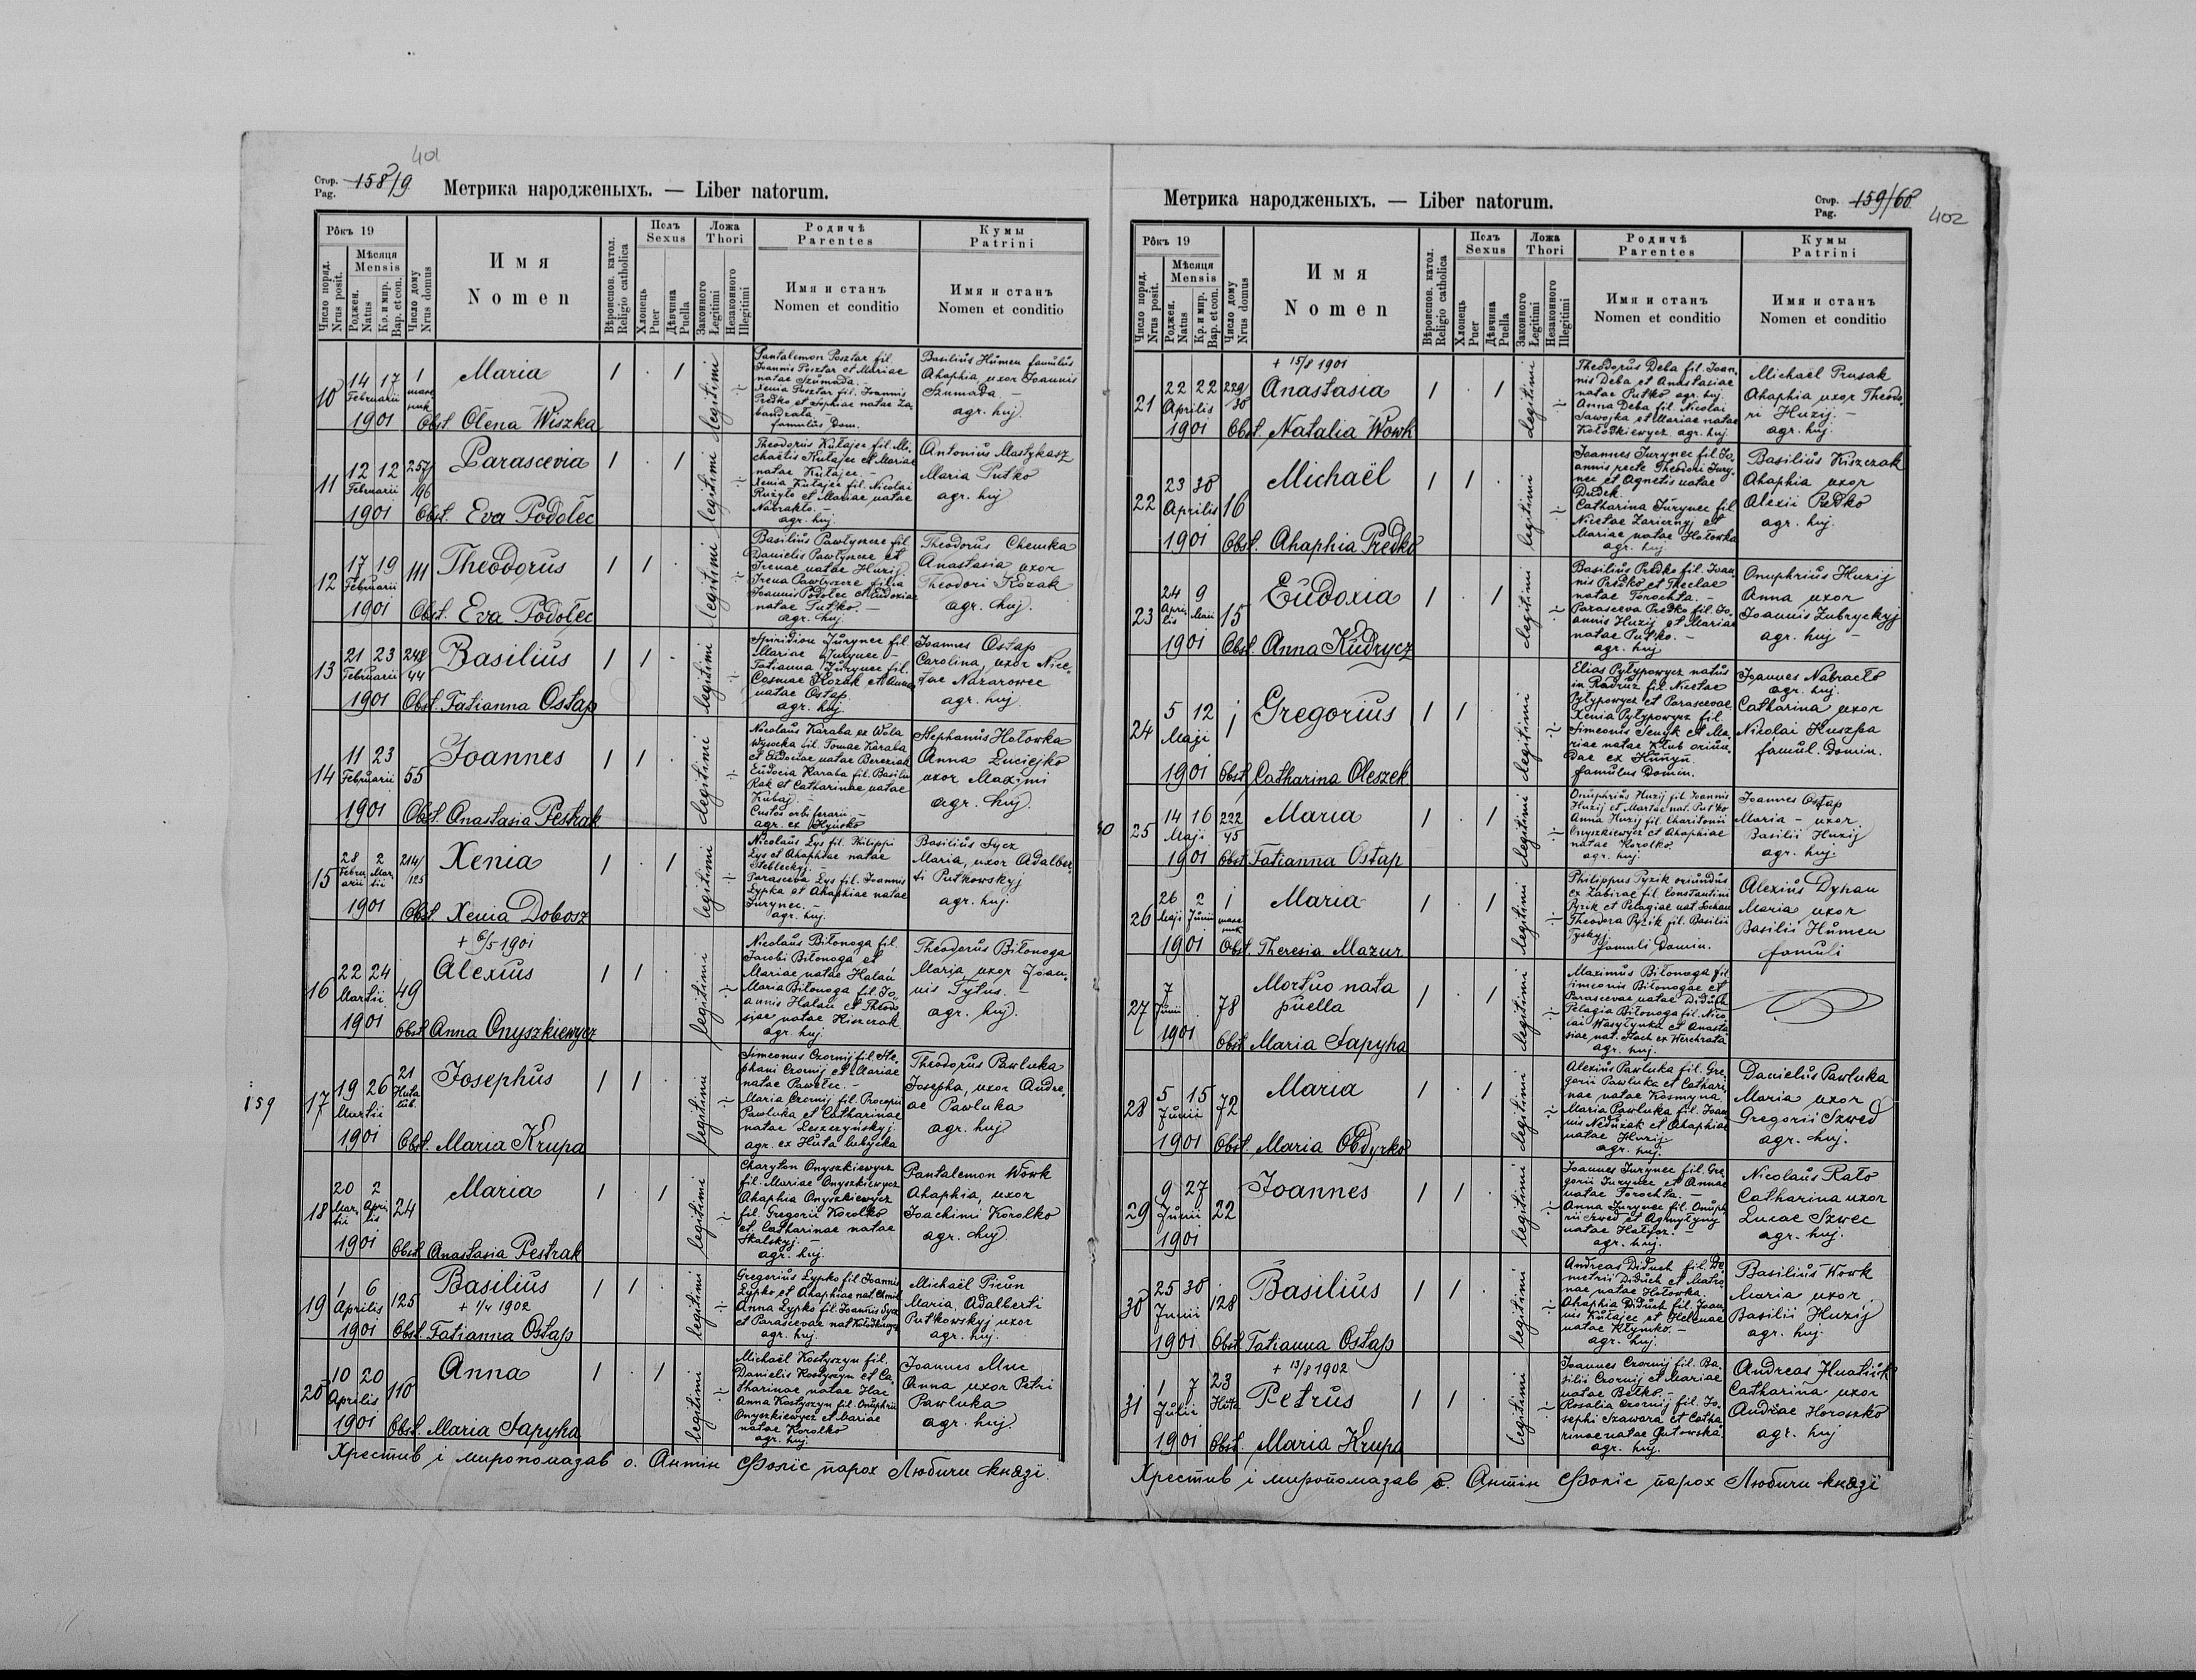 401
Стор. Pag. 158/9
Метрика народженыхъ. — Liber natorum.
Рôкъ 19
Число поряд. Nrus posit.
Мѣсяця Mensis
Роджен. Natus
Кр. и мир. Bap. et con.
Число дому Nrus domus
Имя
Nomen
Вѣроиспов. катол. Religio catholica
Полъ Sexus
Хлопець Puer
Дѣвчина Puella
Ложа Thori
Законного Legitimi
Незаконного Illegitimi
Родичѣ
Parentes
Имя и станъ
Nomen et conditio
Кумы
Patrini
Имя и станъ
Nomen et conditio
10
14 17
Februarii
1901
1
Maria
1 . 1
legitimi
Obst. Olena Wiszka
Pantalemon Posztar fil.
Joannis Posztar et Mariae
natae Szumada. —
Xenia Posztar fil. Joannis
Predko et Sophiae natae
famulus Dom.
Basilius Humen famulus
Ahaphia uxor Joannis
Szumada —
agr. huj.
11
12 12
Februarii
1901
257/96
Parascevia
1 . 1
legitimi
Obst. Eva Podolec
Theodorus Kułajec fil. Mi-
chaelis Kułajec et Mariae
natae Kułajec. —
Xenia Kułajec fil. Nicolai
Rużyło et Mariae natae
Nabrakło. —
agr. huj.
Antonius Mastykasz
Maria Putko
agr. huj
12
17 19
Februarii
1901
111
Theodorus
1 1 .
legitimi
Obst. Eva Podolec
Basilius Pawłyszcze fil.
Danielis Pawłyszcze et
Irenae natae Huzij
Irena Pawłyszcze filia
Joannis Podolec et Eudoxiae
natae Putko. —
agr. huj.
Theodorus Chemka
Anastasia uxor
Theodori Kozak
agr. huj.
13
21 23
Februarii
1901
248/44
Basilius
1 1 .
legitimi
Obst. Tatianna Ostap
Spiridion Jurynec fil.
Mariae Jurynec —
Tatianna Jurynec fil.
Cosmae Kozak et Annae
natae Ostap.
agr. huj.
Joannes Ostap
Carolina, uxor Nice-
tae Nazarowec
agr. huj.
14
11 23
Februarii
1901
55
Joannes
1 1 .
legitimi
Obst. Anastasia Pestrak
Nicolaus Karaba ex Wola
Wysocka fil. Tomae Karaba
et Eudociae natae Bereziak
Eudocia Karaba fil. Basilii
Rak et Catharinae natae
Kubaj. —
agr. ex Hyjsko
Stephanus Hotowka
Anna Luciejko
uxor Maximi
agr. huj.
15
28 2
Febru-arii Mar-tii
1901
214/125
Xenia
1 . 1
legitimi
Obst. Xenia Dobosz
Nicolaus Lys fil. Philippi
Lys et Ahaphiae natae
Stebleckyj.
Parasceva Lys fil. Joannis
Lypka et Ahaphiae natae
Jurynec. —
agr. huj.
Basilius Sycz
Maria, uxor Adalber-
ti Putkowskyj
agr. huj.
16
22 24
Martii
1901
49
+ 6/5 1901
Alexius
1 1 .
legitimi
Obst. Anna Onyszkiewycz
Nicolaus Biłonoga fil.
Jacobi Biłonoga et
Mariae natae Halań
Maria Biłonoga fil. Jo-
annis Halan et Theodo-
siae natae Kiszczak
agr. huj.
Theodorus Biłonoga
Maria, uxor Joan-
nis Tytus. —
agr. huj.
159
17
19 26
Martii
1901
21
Huta lub.
Josephus
1 1 .
legitimi
Obst. Maria Krupa
Simeonus Czornij fil. Ste-
phani Czornij et Mariae
natae Pawelec. —
Maria Czornij fil. Procopii
Pawluka et Catharinae
natae Leszczyńskyj
agr. ex Huta lubycka
Theodorus Pawluka
Josepha, uxor Andre-
ae Pawluka
agr. huj.
18
20 2
Mar-tii Apri-lis
1901
24
Maria
1 . 1
legitimi
Obst. Anastasia Pestrak
Charyton Onyszkiewycz
fil. Mariae Onyszkiewycz
Ahaphia Onyszkiewycz
fil. Gregorii Korolko
et Catharinae natae
Skalskyj. —
agr. huj.
Pantalemon Wowk
Ahaphia, uxor
Joachimi Korolko
agr. huj.
19
1 6
Aprilis
1901
125
Basilius
+ 1/4 1902
1 1 .
legitimi
Obst. Tatianna Ostap
Gregorius Lypko fil. Joannis
Lypko et Ahaphiae nat. Chmil
Anna Lypko fil. Joannis Sycz
et Parascevae nat. Kołodkiewycz
agr. huj.
Michaël Picun
Maria, Adalberti
Putkowskyj uxor
agr. huj.
20
10 20
Aprilis
1901
110
Anna
1 . 1
legitimi
Obst. Maria Sapyha
Michaël Kostyszyn fil.
Danielis Kostyszyn et Ca-
tharinae natae Hac
Anna Kostyszyn fil. Onuphrii
Onyszkiewycz et Mariae
natae Korolko
agr. huj.
Joannes Muc
Anna uxor Petri
Pawluka
agr. huj.
Хрестив і миропомазав о. Антін Фолїс парох Любичи князї.
Метрика народженыхъ. — Liber natorum.
Стор. Pag. 159/60
402
Рôкъ 19
Число поряд. Nrus posit.
Мѣсяця Mensis
Роджен. Natus
Кр. и мир. Bap. et con.
Число дому Nrus domus
Имя
Nomen
Вѣроиспов. катол. Religio catholica
Полъ Sexus
Хлопець Puer
Дѣвчина Puella
Ложа Thori
Законного Legitimi
Незаконного Illegitimi
Родичѣ
Parentes
Имя и станъ
Nomen et conditio
Кумы
Patrini
Имя и станъ
Nomen et conditio
21
22 22
Aprilis
1901
229/30
+ 15/8 1901
Anastasia
1 . 1
legitimi
Obst. Natalia Wowk
Theodorus Deba fil. Joan-
nis Deba et Anastasiae
natae Putko agr. huj.
Anna Deba fil. Nicolai
Sawojka et Mariae natae
Kołodkiewycz agr. huj.
Michaël Prusak
Ahaphia uxor Theodo-
ri Huzij. —
agr. huj.
22
23 30
Aprilis
1901
16
Michaël
1 1 .
legitimi
Obst. Ahaphia Predko
Joannes Jurynec fil. Jo-
annis recte Theodori Jury-
nec et Agnetis natae
Dudek.
Catharina Jurynec fil.
Nicetae Zariczny et
Mariae natae Hotowka
agr. huj.
Basilius Kiszczak
Ahaphia uxor
Alexii Predko
agr. huj.
23
24 9
Apri-lis Maii
1901
15
Eudoxia
1 . 1
legitimi
Obst. Anna Kudrycz
Basilius Predko fil. Joan-
nis Predko et Theclae
natae Torochta. —
Parasceva Predko fil. Jo-
annis Huzij et Mariae
natae Putko. —
agr. huj.
Onuphrius Huzij
Anna uxor
Joannis Zubryckyj
agr. huj —
24
5 12
Maji
1901
1
Gregorius
1 1 .
legitimi
Obst. Catharina Oleszek
Elias Pyłypowycz natus
in Radruż fil. Nicetae
Pyłypowycz et Parascevae
Xenia Pyłypowycz fil.
Simeonis Senyk et Ma-
riae natae Kłub oriun-
dae ex Hunyn
famulus Domin.
Joannes Nabracło
agr. huj.
Catharina uxor
Nicolai Kuszpa
famul. Domin.
60
25
14 16
Maji
1901
222/45
Maria
1 . 1
legitimi
Obst. Tatianna Ostap
Onuphrius Huzij fil. Joannis
Huzij et Martae nat. Putko
Anna Huzij fil. Charitonii
Onyszkiewycz et Ahaphiae
natae Korolko
agr. huj.
Joannes Ostap
Maria — uxor
Basilii Huzij
agr. huj.
26
26 2
Maji Junii
1901
1
Maria
1 . 1
legitimi
Obst. Theresia Mazur
Philippus Pyzik oriundus
ex Zabirae fil. Constantini
Pyzik et Pelagiae nat. Sochan
Theodora Pyzik fil. Basilii
Tyskyj.
famuli Domin.
Alexius Dynau
Maria uxor
Basilii Humen
famuli
27
7
Junii
1901
78
Mortuo nata
puella
1 . 1
legitimi
Obst. Maria Sapyha
Maximus Biłonoga fil.
Simeonis Biłonogae et
Parascevae natae Diduch
Pelagia Biłonoga fil. Nico-
lai Wasyłynka et Anasta-
siae nat. Stach ex Werchrata
agr. huj.
28
5 15
Junii
1901
72
Maria
1 . 1
legitimi
Obst. Maria Obdyrko
Alexius Pawluka fil. Gre-
gorii Pawluka et Cathari-
nae natae Kosmyna
Maria Pawluka fil. Joan-
nis Neduzak et Ahaphiae
natae Huzij
agr. huj.
Danielus Pawluka
Maria uxor
Gregorii Szwed
agr. huj.
29
9 27
Junii
1901
22
Joannes
1 1 .
legitimi
Joannes Jurynec fil. Gre-
gorii Jurynec et Annae
natae Torochta. —
Anna Jurynec fil. Onuph-
rii Szwed et
natae Hałycz. —
agr. huj.
Nicolaus Rato
Catharina uxor
Lucae Szwec
agr. huj.
30
25 30
Junii
1901
128
Basilius
1 1 .
legitimi
Obst. Tatianna Ostap
Andreas Diduch fil. De-
metrii Diduch et Matro-
nae natae Hotowka
Ahaphia Diduch fil. Joan-
nis Kułajec et Helenae
natae Kłymko. —
agr. huj.
Basilius Wowk
Maria uxor
Basilii Huzij
agr. huj.
31
1 7
Julii
1901
23
Huta
+ 13/8 1902
Petrus
1 1 .
legitimi
Obst. Maria Krupa
Joannes Czornij fil. Ba-
silii Czornij et Mariae
natae Betko. —
Rosalia Czornij fil. Jo-
sephi Szawara et Catha-
rinae natae Gutowska
agr. huj.
Andreas Hnatiuk
Catharina uxor
Andreae Horoszko
agr. huj
Хрестив і миропомазав о. Антін Фолїс парох Любичи князї